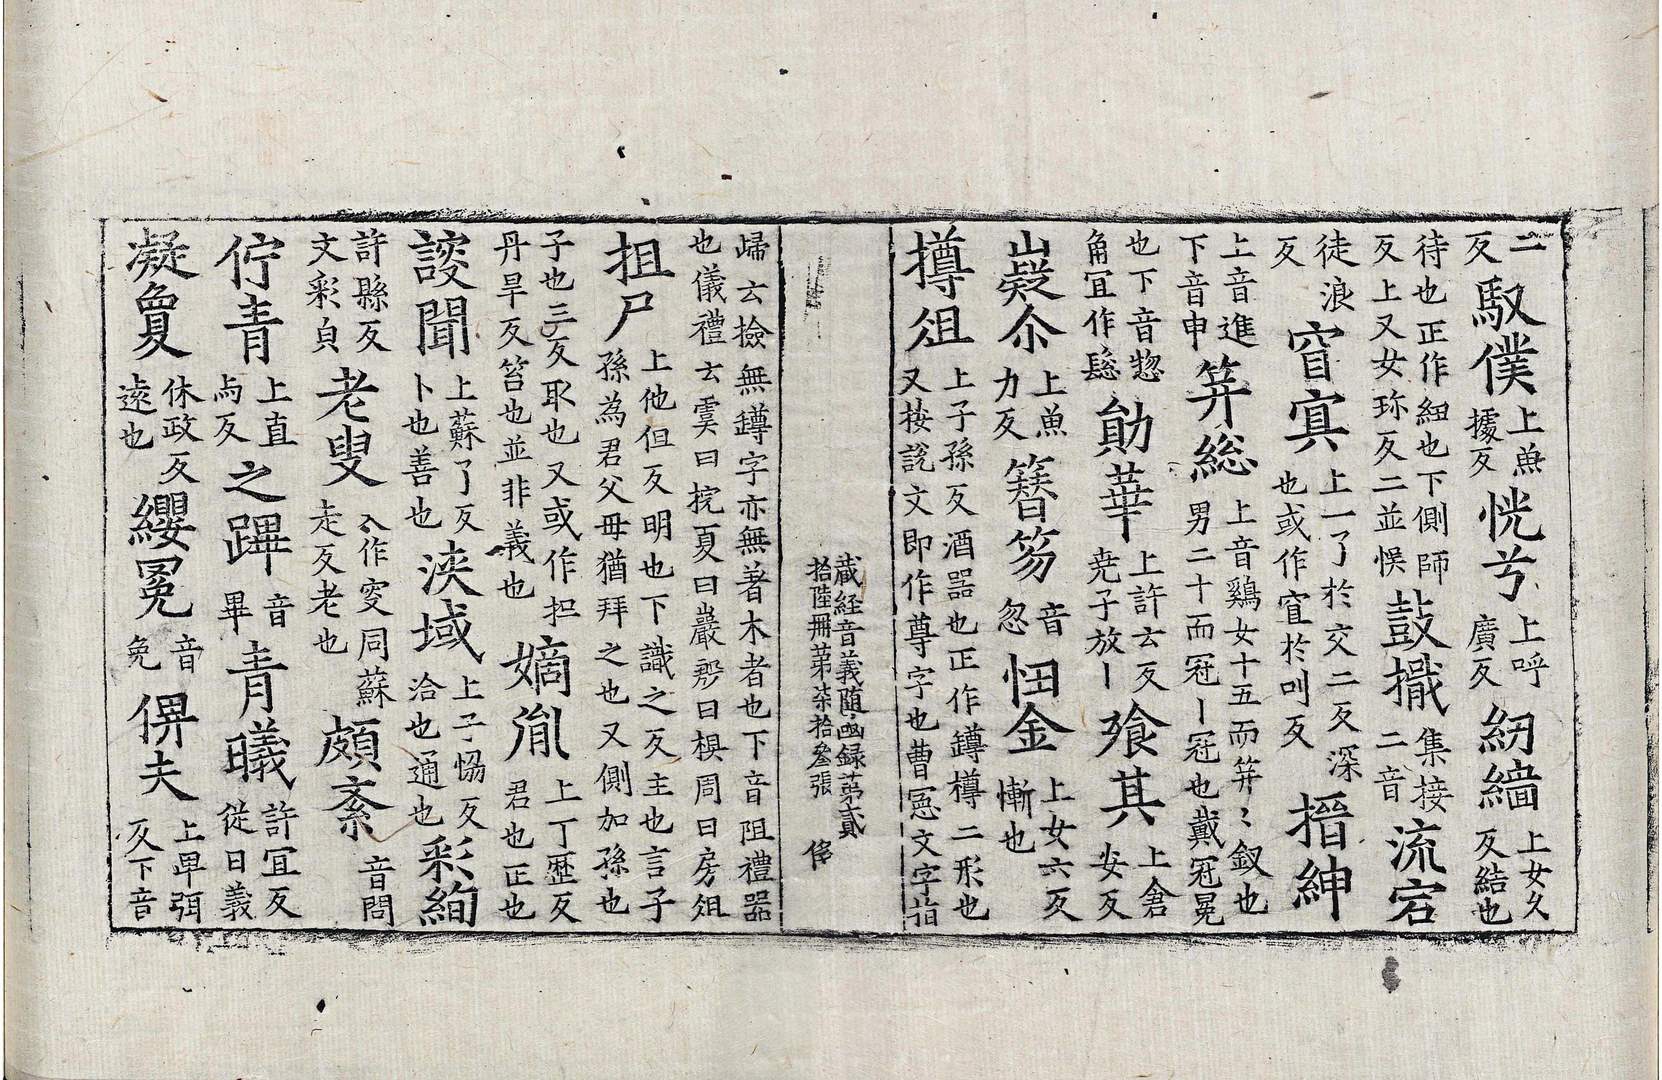 二反馭僕上魚據反恍兮上呼廣反紉緧上女久反結也
待也正作紐也下側師反上又女珎反二並悞鼔擮集接二音流宕
徒浪反窅寘上一了於交二反深也或作窅於叫反搢紳
上音進下音申笄総上音鷄女十五而笄〻釵也男二十而冠丨冠也戴冠冕
也下音惣角冝作䰂勛華上許云反堯子放丨飡其上倉安反
嶷尒上魚力反簪笏音忽忸金上女六反慚也
撙俎上子孫反酒器也正作罇樽二形也又按說文即作尊字也曹憲文字指
歸云撿無罇字亦無著木者也下音阻禮器也儀禮云㝢曰梡夏曰嶡殷曰椇周曰房俎
抯尸上他但反明也下識之反主也言子孫為君父母猶拜之也又側加孫也
子也三反取也又或作担丹旱反笞也並非義也嫡胤上丁歷反君也正也
謏聞上蘇了反卜也善也浹域上子愶反洽也通也彩絢
許縣反文彩皃老叟亽作叜同蘇走反老也頗紊音問
佇青上直与反之蹕音畢青曦許宜反從日義
凝敻休政反遠也纓冕音免俜夫上卑弭反下音
藏経音義随函録苐貳
拾陸冊苐柒拾叄張 修